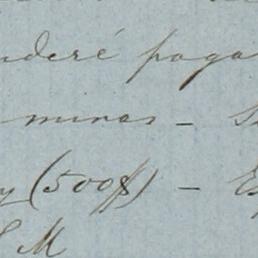 nderé paga
minas — S
y (500$) — E
S M